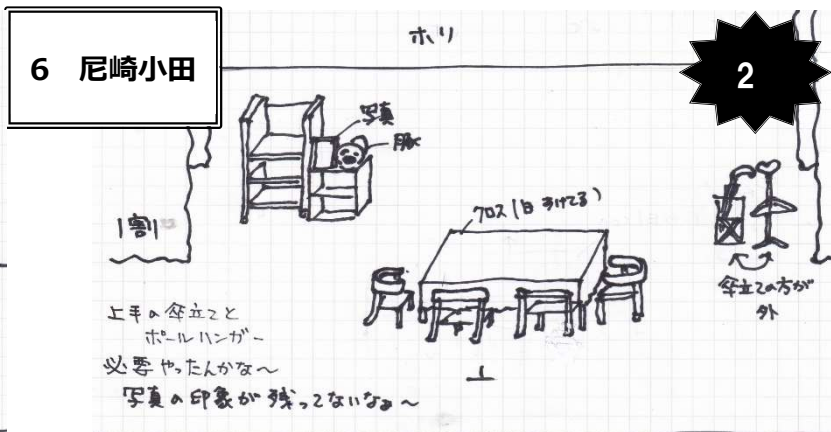 6 尼崎小田
ホリ
2
写真
豚
クロス(白 すけてる)
1割
傘立ての方が
外
上手の傘立てと
ポールハンガー
必要やったんかな〜
写真の印象が残ってないなぁ〜